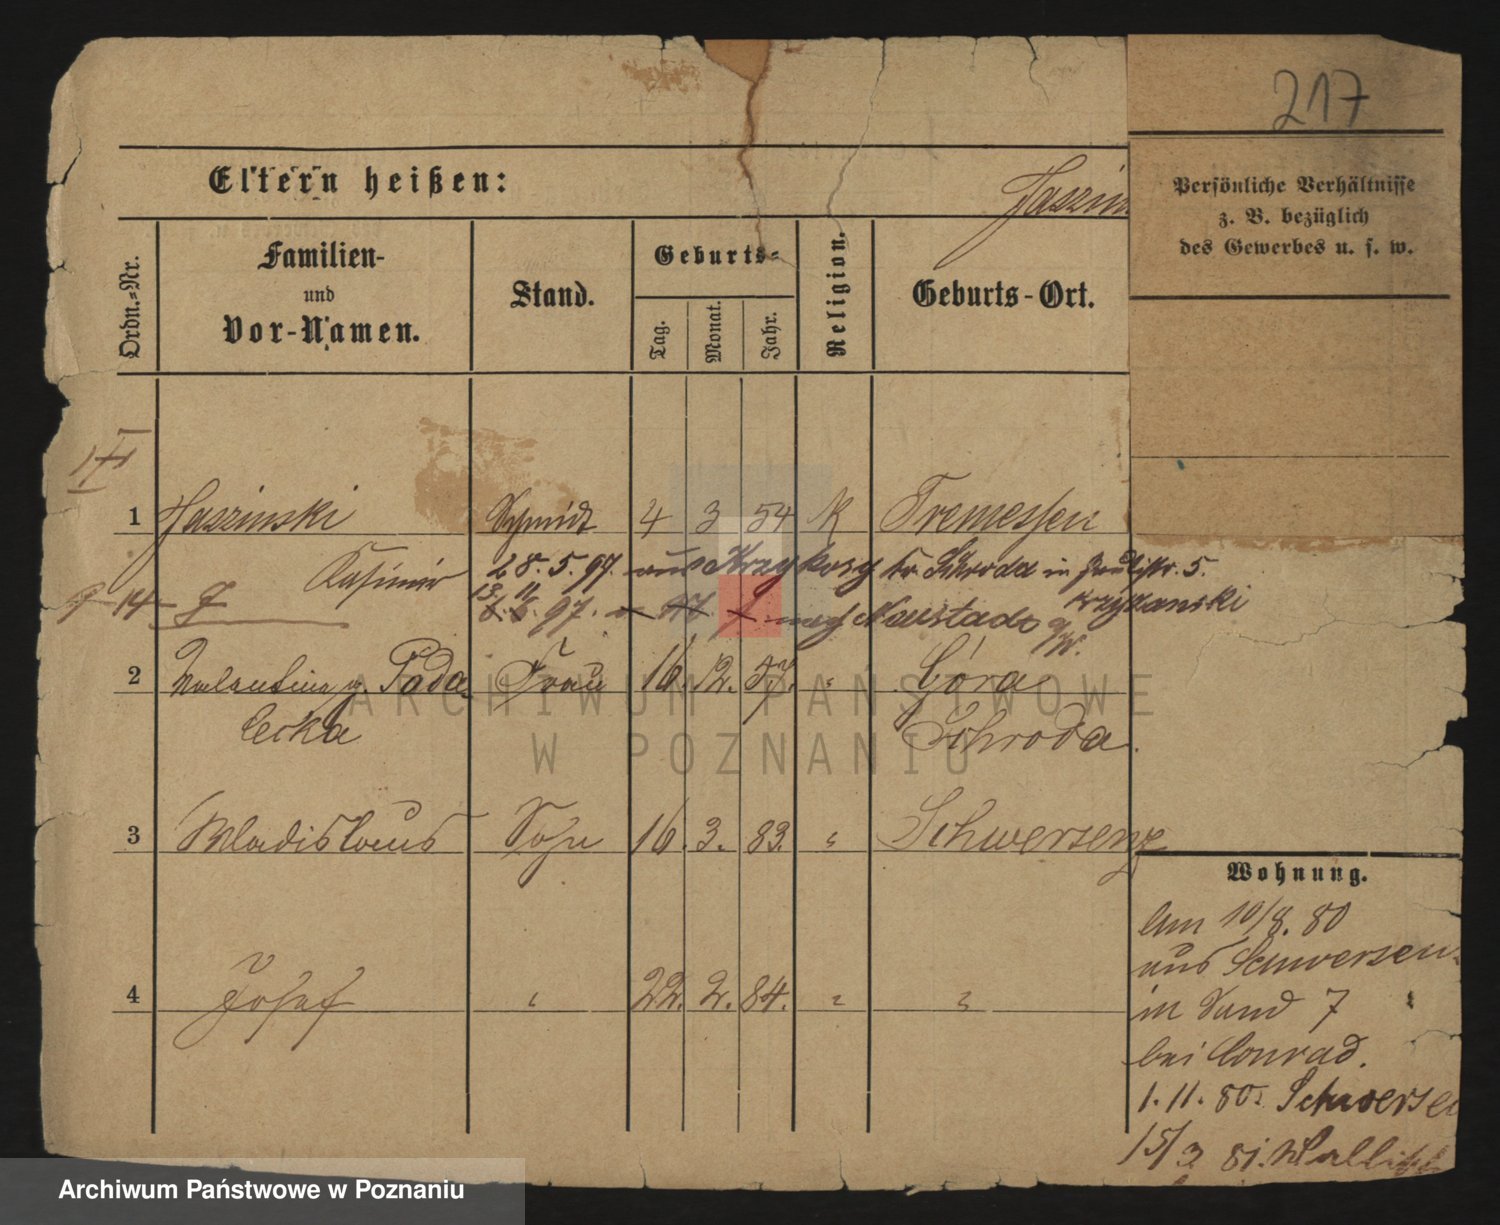 217
Eltern heißen:
Jaszin
Persönliche Verhältnisse
z. B. bezüglich
des Gewerbes u. s. w.
Ordn.-Nr.
Familien-
und
Vor-Namen.
Stand.
Geburts-
Tag.
Monat.
Jahr.
Religion.
Geburts-Ort.
1 Jaszinski Schmidt 4 3 54 K Tremessen
Kasimir 28. 5. 97. aus Krzykosy Kr. Schroda in 5.
13. 11
6. 97. nach Neustadt Krzyzanski
a/W.
2 Valentina g. Pada Frau 16. 12. 57. " Góra
lecka Schroda.
3 Wladislaus Sohn 16. 3. 83. " Schwersenz
4 Josef " 22. 2. 84. " "
Wohnung.
Am 10/8. 80
aus Schwersen
in Sand 7
bei Conrad.
1. 11. 80. Schwersen
15/3 81. Wallisch
ARCHIWUM PAŃSTWOWE
W POZNANIU
Archiwum Państwowe w Poznaniu